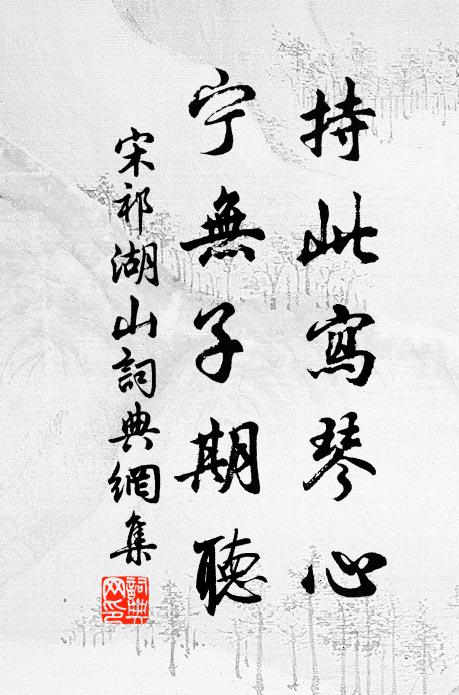 持此寫琴心
宁無子期聽
宋祁湖山詞典網集
詞典网印